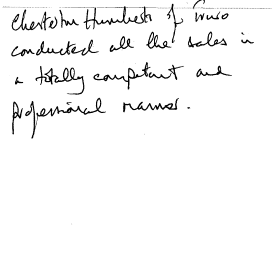 Chesterton Humberts of Truro
conducted all the sales in
a totally competant and
professional manner.